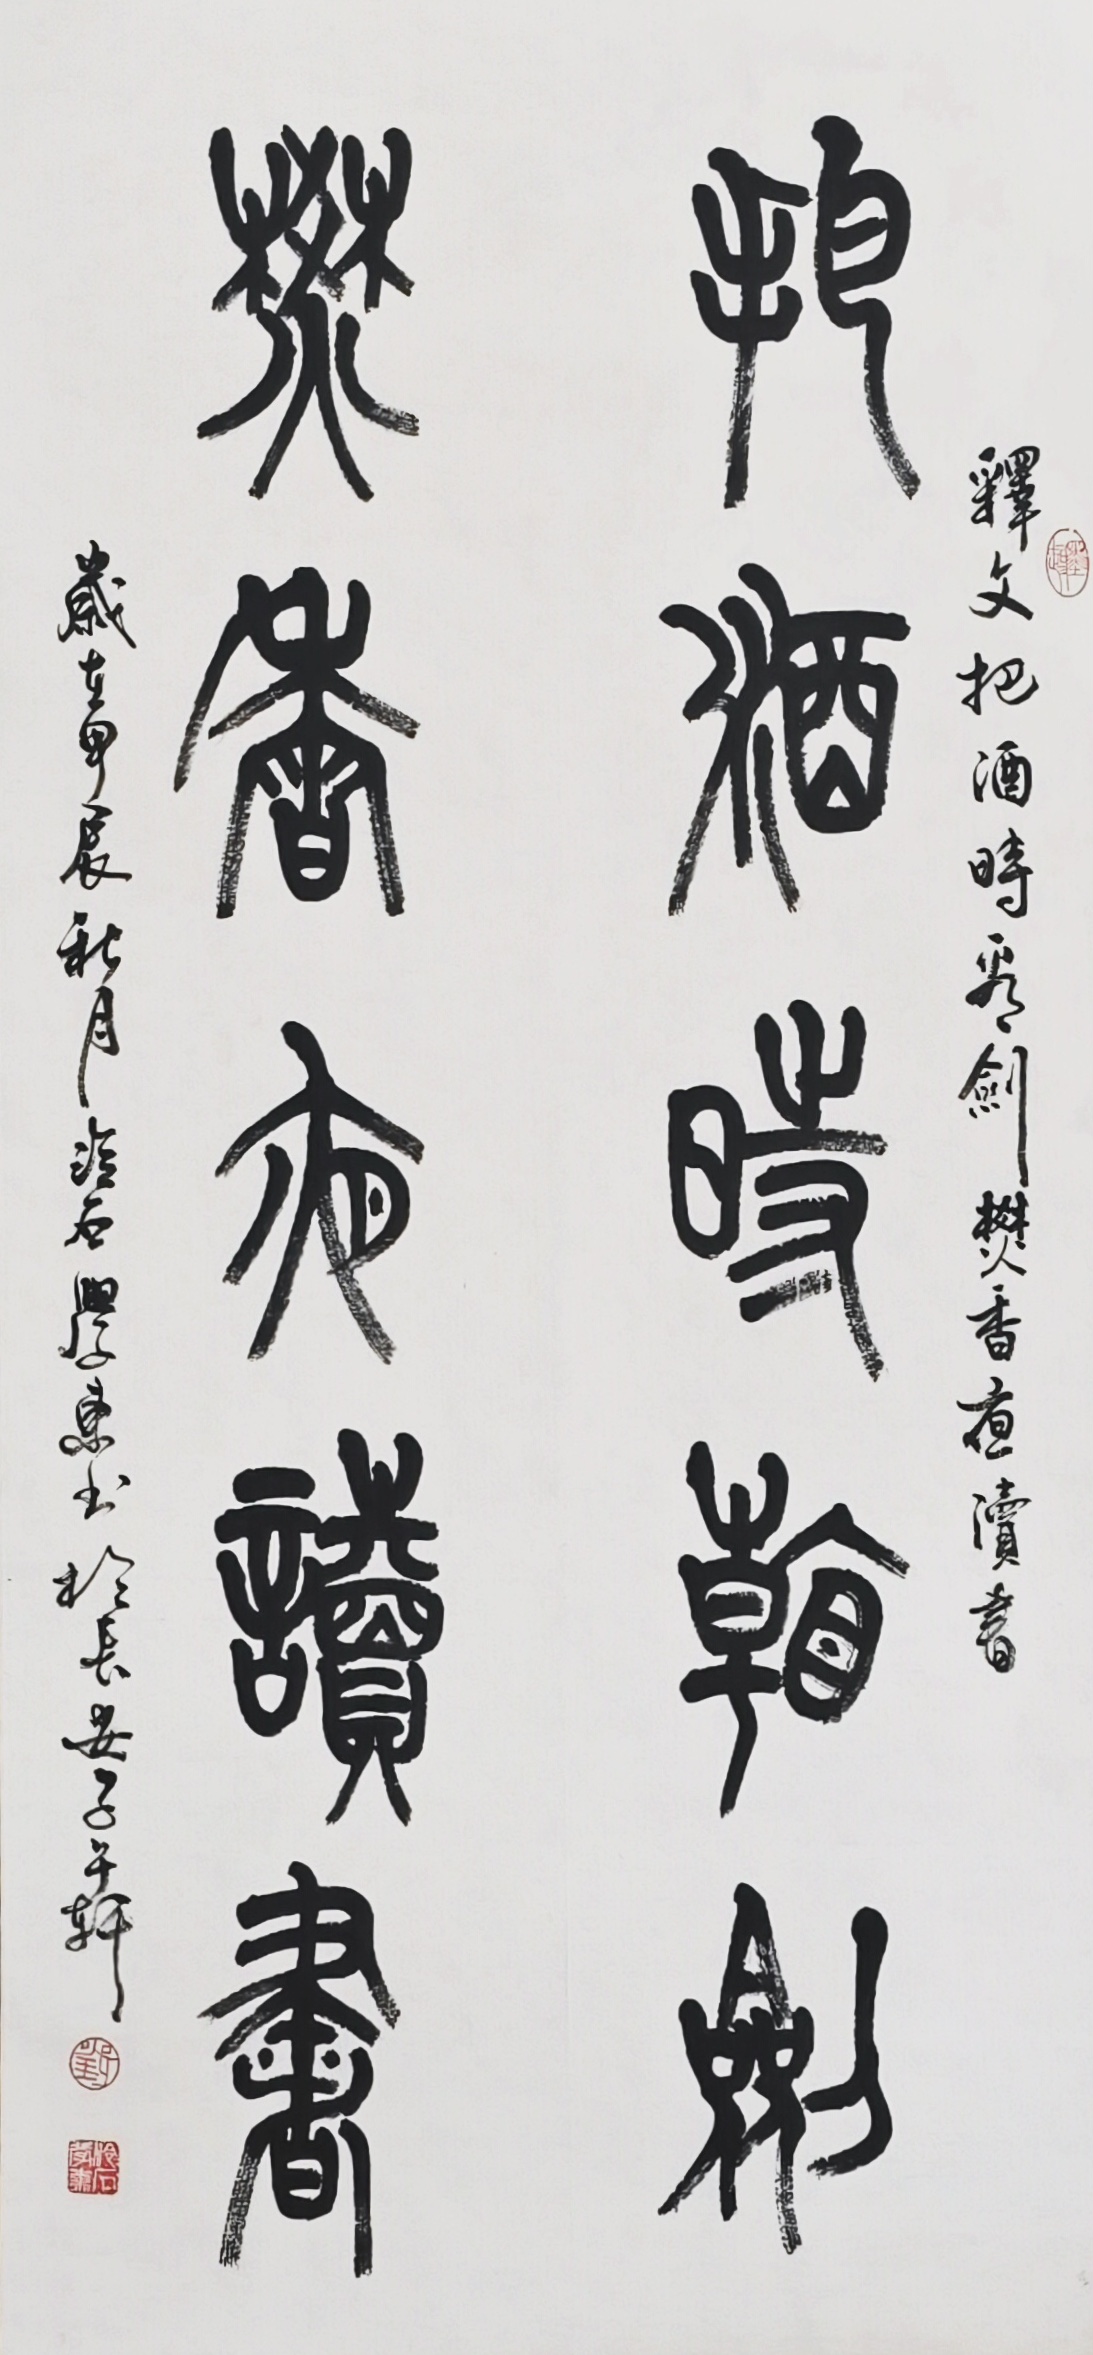 釋文把酒時看劍樊香夜瀆書
把酒時看劍
樊香夜讀書
歲在甲辰秋月冷石學東書於長安子午軒